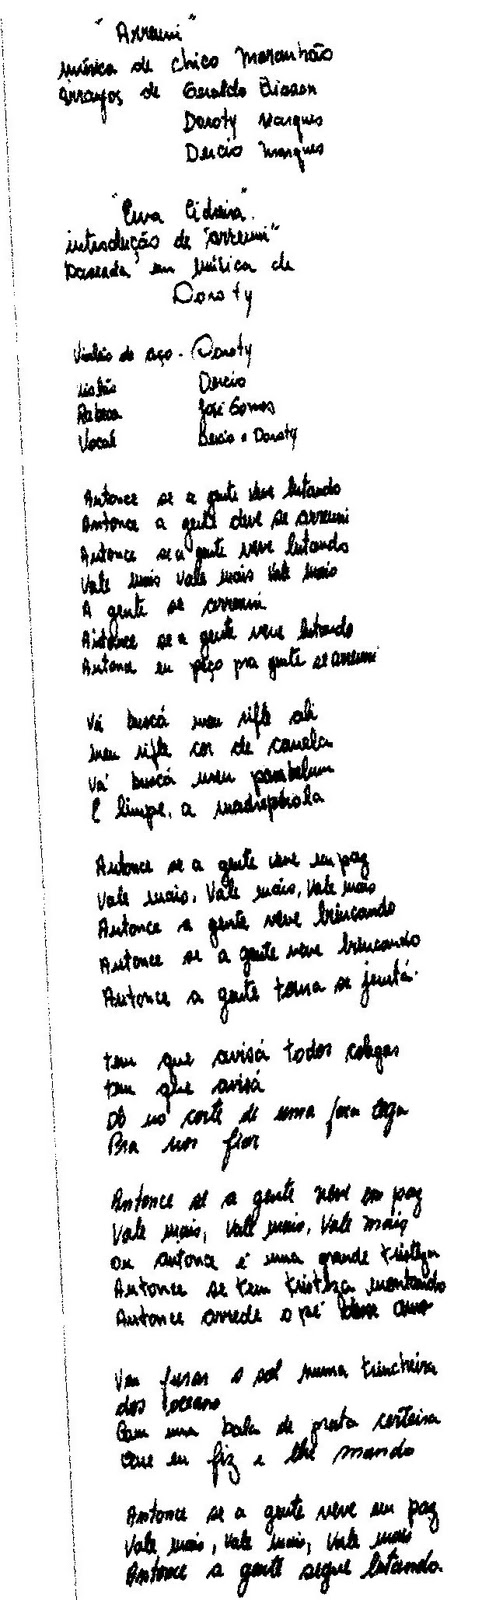 "Arreuni"
música de Chico Maranhão
arranjos de Geraldo
Doroty Marques
Dercio Marques
"Erva Cidreira"
introdução de "arreuni"
Baseada em música de
Doroty
Violão de aço - Doroty
Violão Dercio
Rabeca José Gomes
Vocal Dercio e Doroty
Antonce se a gente veve lutando
Antonce a gente deve se arreuni
Antonce se a gente veve lutando
Vale mais Vale mais Vale mais
A gente se arreuni
Antonce se a gente veve lutando
Antonce eu peço pra gente se arreuni
Vá buscá meu rifle ali
meu rifle cor de canela
Vá buscá meu parabelum
E limpe, a madrepérola
Antonce se a gente veve em paz
Vale mais, Vale mais, Vale mais
Antonce a gente veve brincando
Antonce se a gente veve brincando
Antonce a gente torna se juntá.
tem que avisá todos colegas
tem que avisá
Dô no corte de uma faca cega
Pra nos fiar
Antonce se a gente veve em paz
Vale mais, Vale mais, Vale mais
ou antonce é uma grande tristeza
Antonce se tem tristeza montando
Antonce arrede o pé
Vou furar o sol numa trincheira
dos oceano
Com uma bala de prata certeira
Que eu fiz e lhe mando
Antonce se a gente veve em paz
Vale mais, Vale mais, Vale mais
Antonce a gente segue lutando.